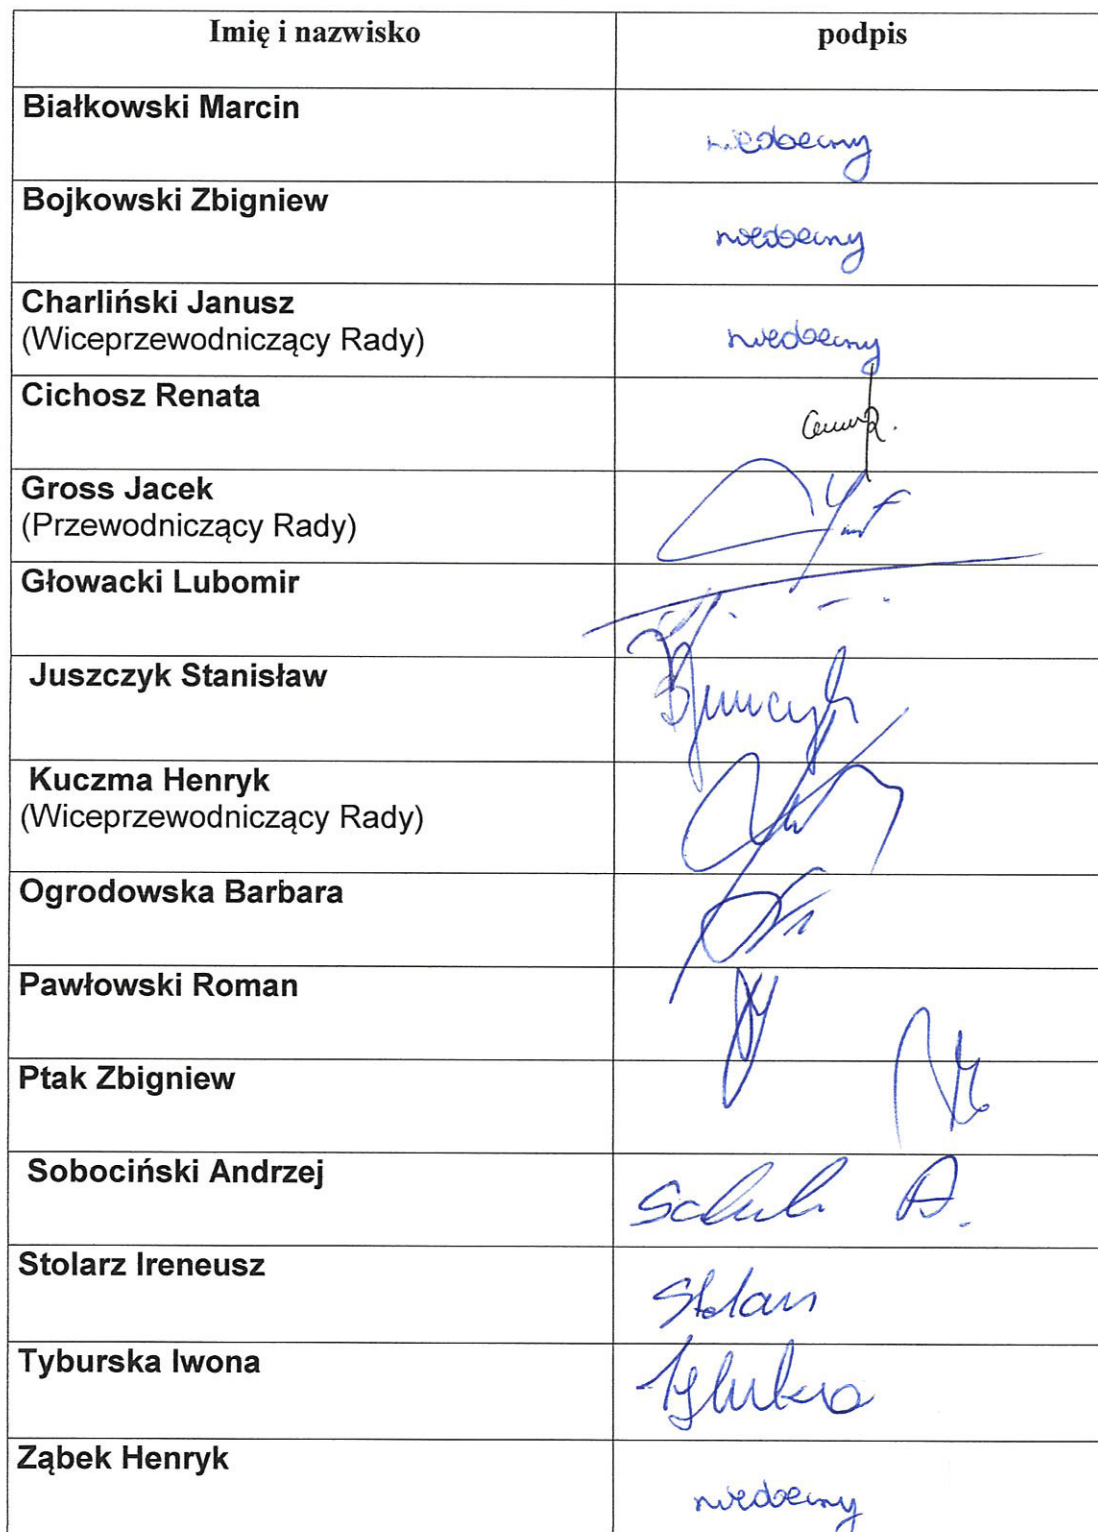 Imię i nazwisko podpis
Białkowski Marcin
nieobecny
Bojkowski Zbigniew
nieobecny
Charliński Janusz
(Wiceprzewodniczący Rady)
nieobecny
Cichosz Renata
Gross Jacek
(Przewodniczący Rady)
Głowacki Lubomir
Juszczyk Stanisław
Kuczma Henryk
(Wiceprzewodniczący Rady)
Ogrodowska Barbara
Pawłowski Roman
Ptak Zbigniew
Sobociński Andrzej
Stolarz Ireneusz
Tyburska Iwona
Ząbek Henryk
nieobecny